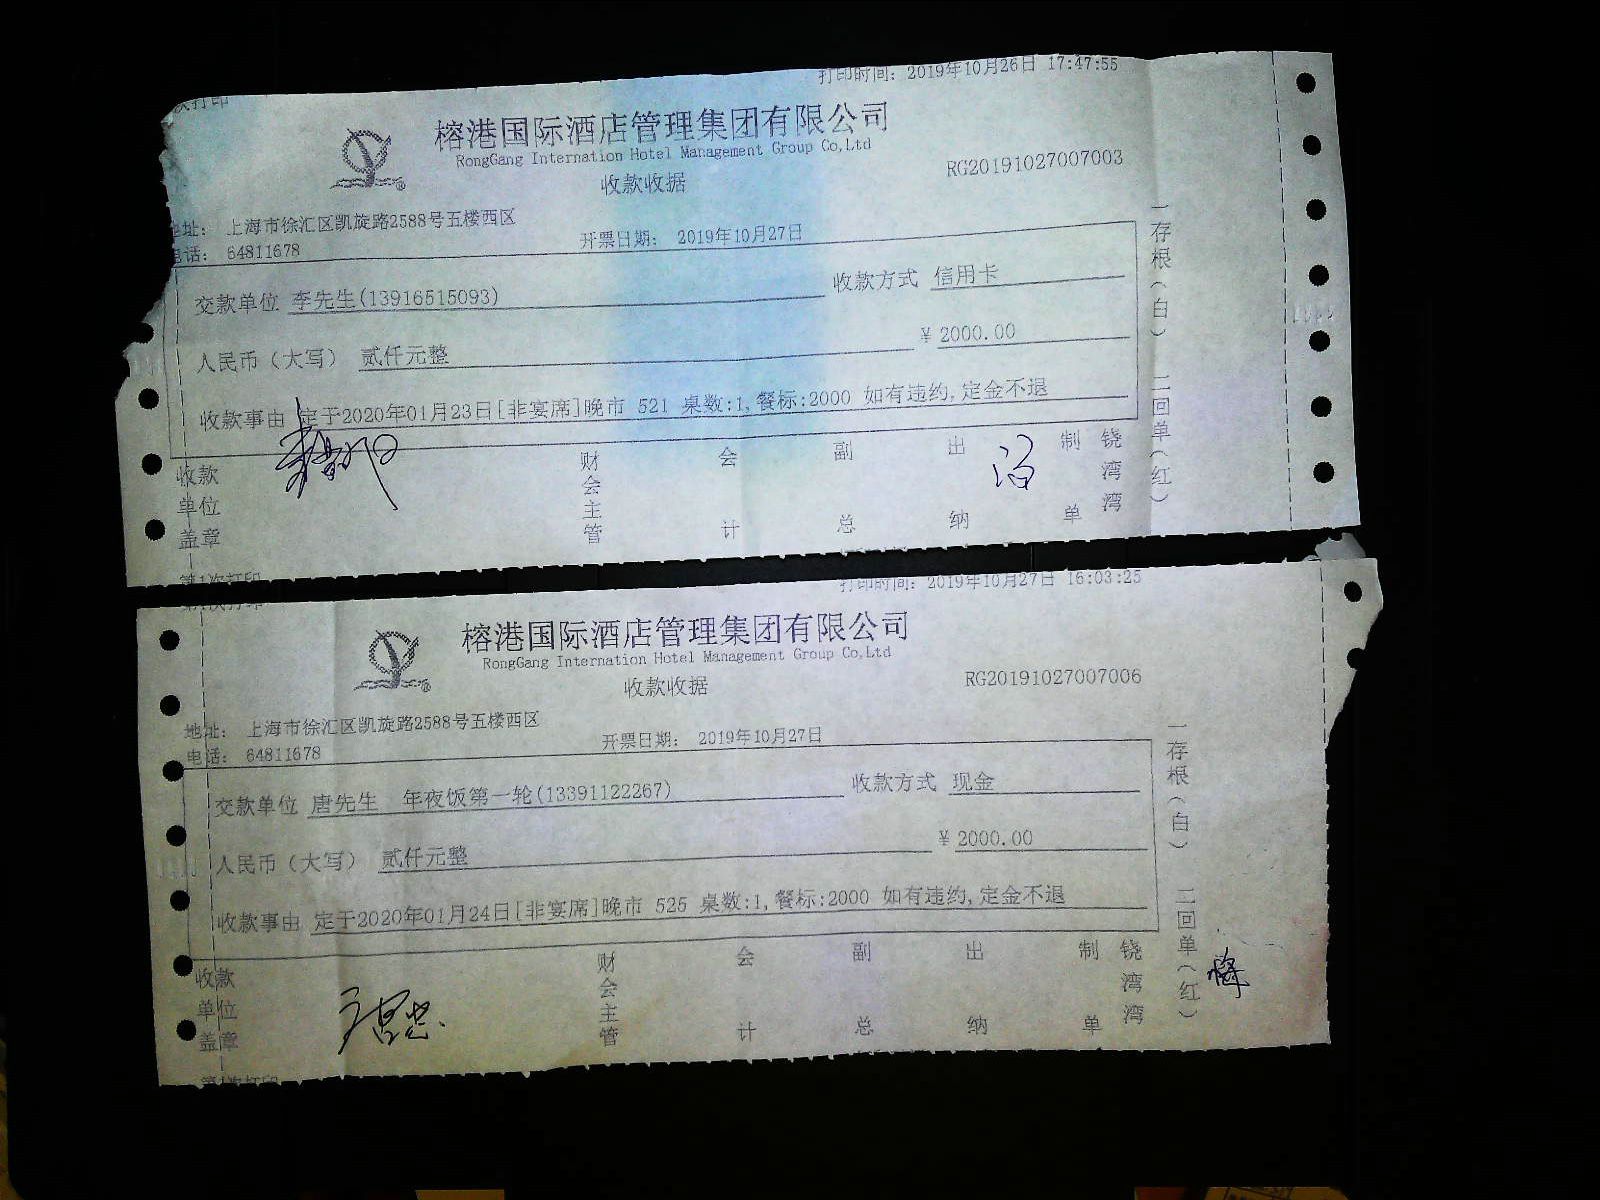 打印时间: 2019年10月26日 17:47:55
榕港国际酒店管理集团有限公司
RongGang Internation Hotel Management Group Co,Ltd
收款收据
RG20191027007003
地址: 上海市徐汇区凯旋路2588号五楼西区
电话: 64811678
开票日期: 2019年10月27日
交款单位 李先生(13916515093)
收款方式 信用卡
人民币（大写） 贰仟元整
¥ 2000.00
收款事由 定于2020年01月23日[非宴席]晚市 521 桌数:1,餐标:2000 如有违约,定金不退
一存根(白) 二回单(红)
收款单位盖章
财会主管
会计
副总
出纳
制单
铙湾湾
第1次打印
打印时间: 2019年10月27日 16:03:25
榕港国际酒店管理集团有限公司
RongGang Internation Hotel Management Group Co,Ltd
收款收据
RG20191027007006
地址: 上海市徐汇区凯旋路2588号五楼西区
电话: 64811678
开票日期: 2019年10月27日
交款单位 唐先生 年夜饭第一轮(13391122267)
收款方式 现金
人民币（大写） 贰仟元整
¥ 2000.00
收款事由 定于2020年01月24日[非宴席]晚市 525 桌数:1,餐标:2000 如有违约,定金不退
一存根(白) 二回单(红)
收款单位盖章
财会主管
会计
副总
出纳
制单
铙湾湾